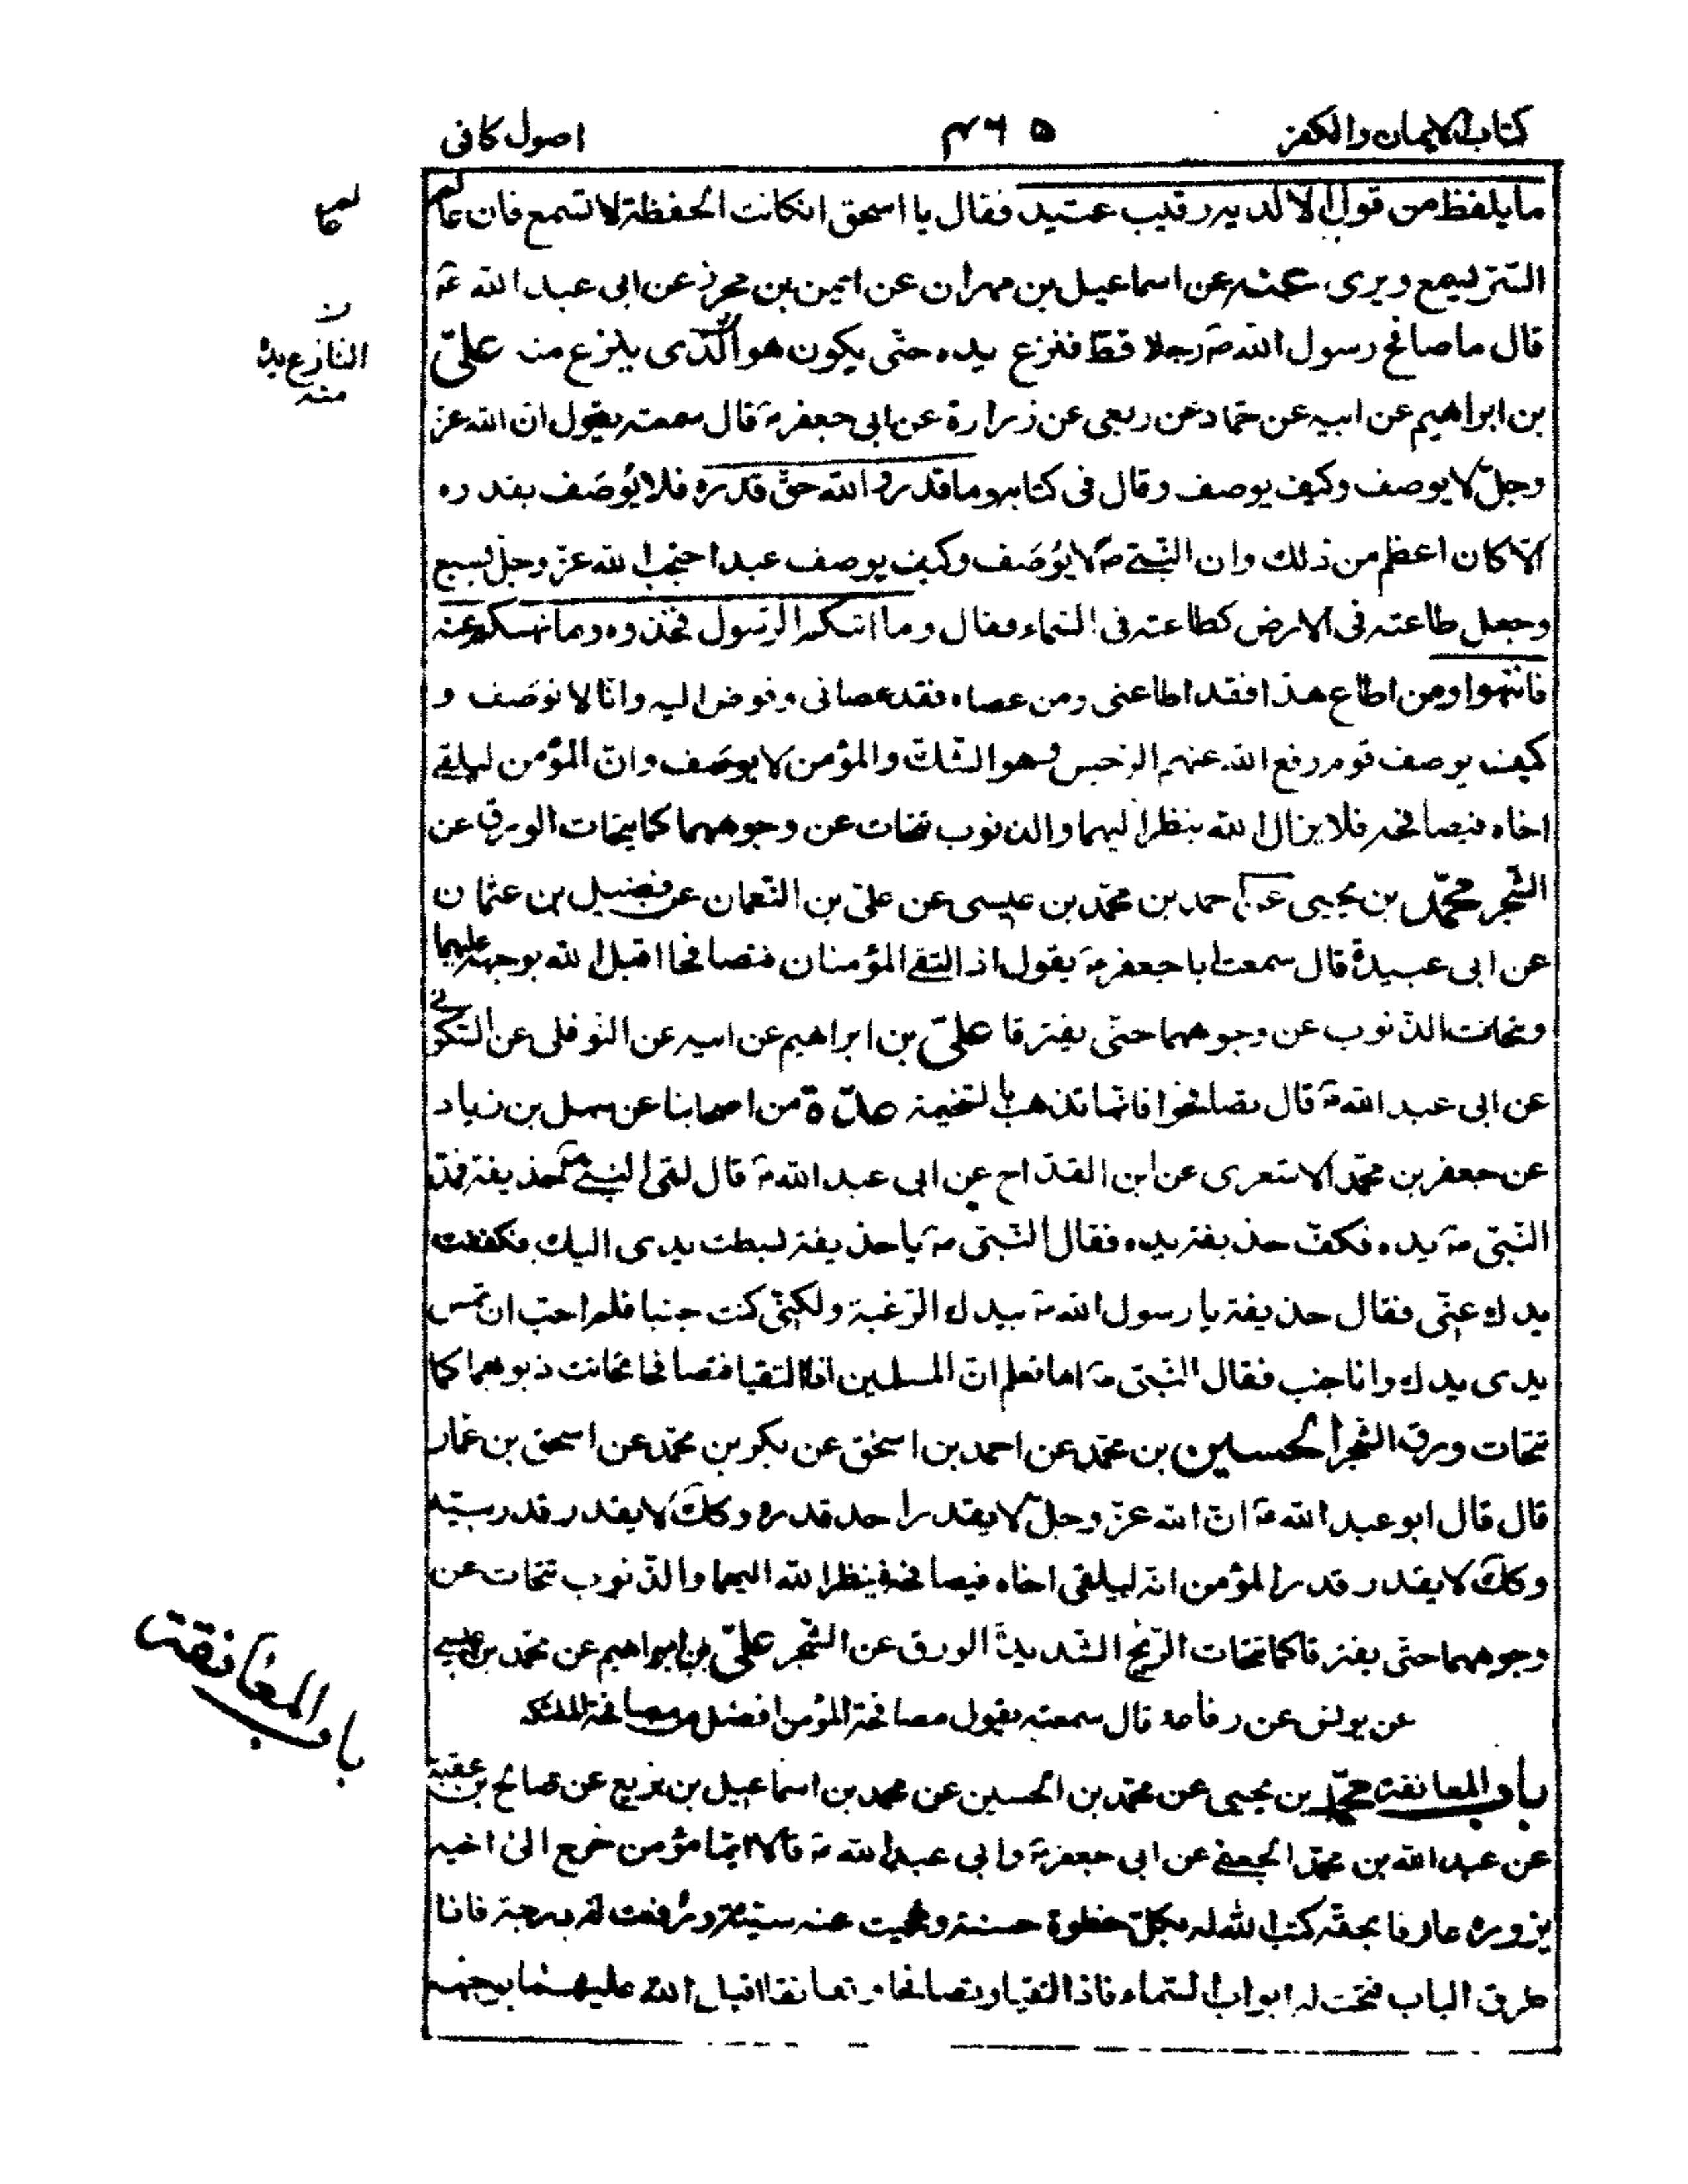 كتاب الايمان والكفر
۴۶۵
اصول كافى
ما يلفظ من قول الا لديه رقيب عتيد فقال يا اسحق ان كانت الحفظة لا تسمع فان عالم
السّرّ يسمع ويرى عنه عن اسماعيل بن مهران عن ايمن بن محرز عن ابى عبد الله ع
قال ما صافح رسول الله ص رجلا قطّ فنزع يده حتّى يكون هو الّذى ينزع منه علىّ
بن ابراهيم عن ابيه عن حمّاد عن ربعى عن زرارة عن ابى جعفر ع قال سمعته يقول ان الله عز
وجلّ لا يوصف وكيف يوصف وقال فى كتابه وما قدروا الله حقّ قدره فلا يُوصَف بقدره
الّا كان اعظم من ذلك وان النّبىّ ص لا يُوصَف وكيف يوصف عبد احتجب الله عزّ وجلّ بسبع
وجعل طاعته فى الارض كطاعته فى السّماء فقال وما اتيكم الرّسول فخذوه وما نهيكم عنه
فانتهوا ومن اطاع هذا فقد اطاعنى ومن عصاه فقد عصانى وفوض اليه وانّا لا نوصَف و
كيف يوصف قوم رفع الله عنهم الرّجس وهو الشّك والمؤمن لا يوصَف وانّ المؤمن ليلقى
اخاه فيصافحه فلا يزال الله ينظر اليهما والذنوب تتحات عن وجوههما كما يتحات الورق عن
الشّجر محمّد بن يحيى عن احمد بن محمّد بن عيسى عن علىّ بن النّعمان عن فضيل بن عثمان
عن ابى عبيدة قال سمعت ابا جعفر ع يقول اذا التقى المؤمنان فتصافحا اقبل الله بوجهه عليهما
وتتحات الذّنوب عن وجوههما حتّى يفترقا علىّ بن ابراهيم عن ابيه عن النّوفلى عن السّكونى
عن ابى عبد الله ع قال تصافحوا فانّها تذهب بالسّخيمة عدّة من اصحابنا عن سهل بن زياد
عن جعفر بن محمّد الاشعرى عن ابن القدّاح عن ابى عبد الله ع قال لقى النبىّ ص حذيفة فمدّ
النّبىّ ص يده فكفّ حذيفة يده فقال النّبىّ ص يا حذيفة بسطت يدى اليك فكففت
يدك عنّى فقال حذيفة يا رسول الله ص بيدك الرّغبة ولكنّى كنت جنبا فلم احبّ ان تمس
يدى يدك وانا جنب فقال النّبىّ ص اما تعلم انّ المسلمين اذا التقيا فتصافحا تحاتت ذنوبهما كما
تتحات ورق الشّجر الحسين بن محمّد عن احمد بن اسحق عن بكر بن محمّد عن اسحق بن عمار
قال قال ابو عبد الله ع انّ الله عزّ وجلّ لا يقدر احد قدره وكك لا يقدر قدر نبيّه
وكك لا يقدر قدر المؤمن انّه ليلقى اخاه فيصافحه فينظر الله اليهما والذّنوب تتحات عن
وجوههما حتّى يفترقا كما تتحات الرّيح الشّديدة الورق عن الشّجر علىّ بن ابراهيم عن محمّد بن عيسى
عن يونس عن رفاعه قال سمعته يقول مصافحة المؤمن افضل من مصافحة الملئكه
باب المعانقة محمّد بن يحيى عن محمّد بن الحسين عن محمد بن اسماعيل بن بزيع عن صالح بن عقبة
عن عبد الله بن محمّد الجعفى عن ابى جعفر ع وابى عبد الله ع قالا ايّما مؤمن خرج الى اخيه
يزوره عارفا بحقّه كتب الله له بكلّ خطوة حسنة ومحيت عنه سيّئة ورُفعت له درجة فاذا
طرق الباب فتحت له ابواب السّماء فاذا التقيا وتصافحا وتعانقا اقبل الله عليهما بوجهه
ن
النازع يده
منه
باب المعانقة